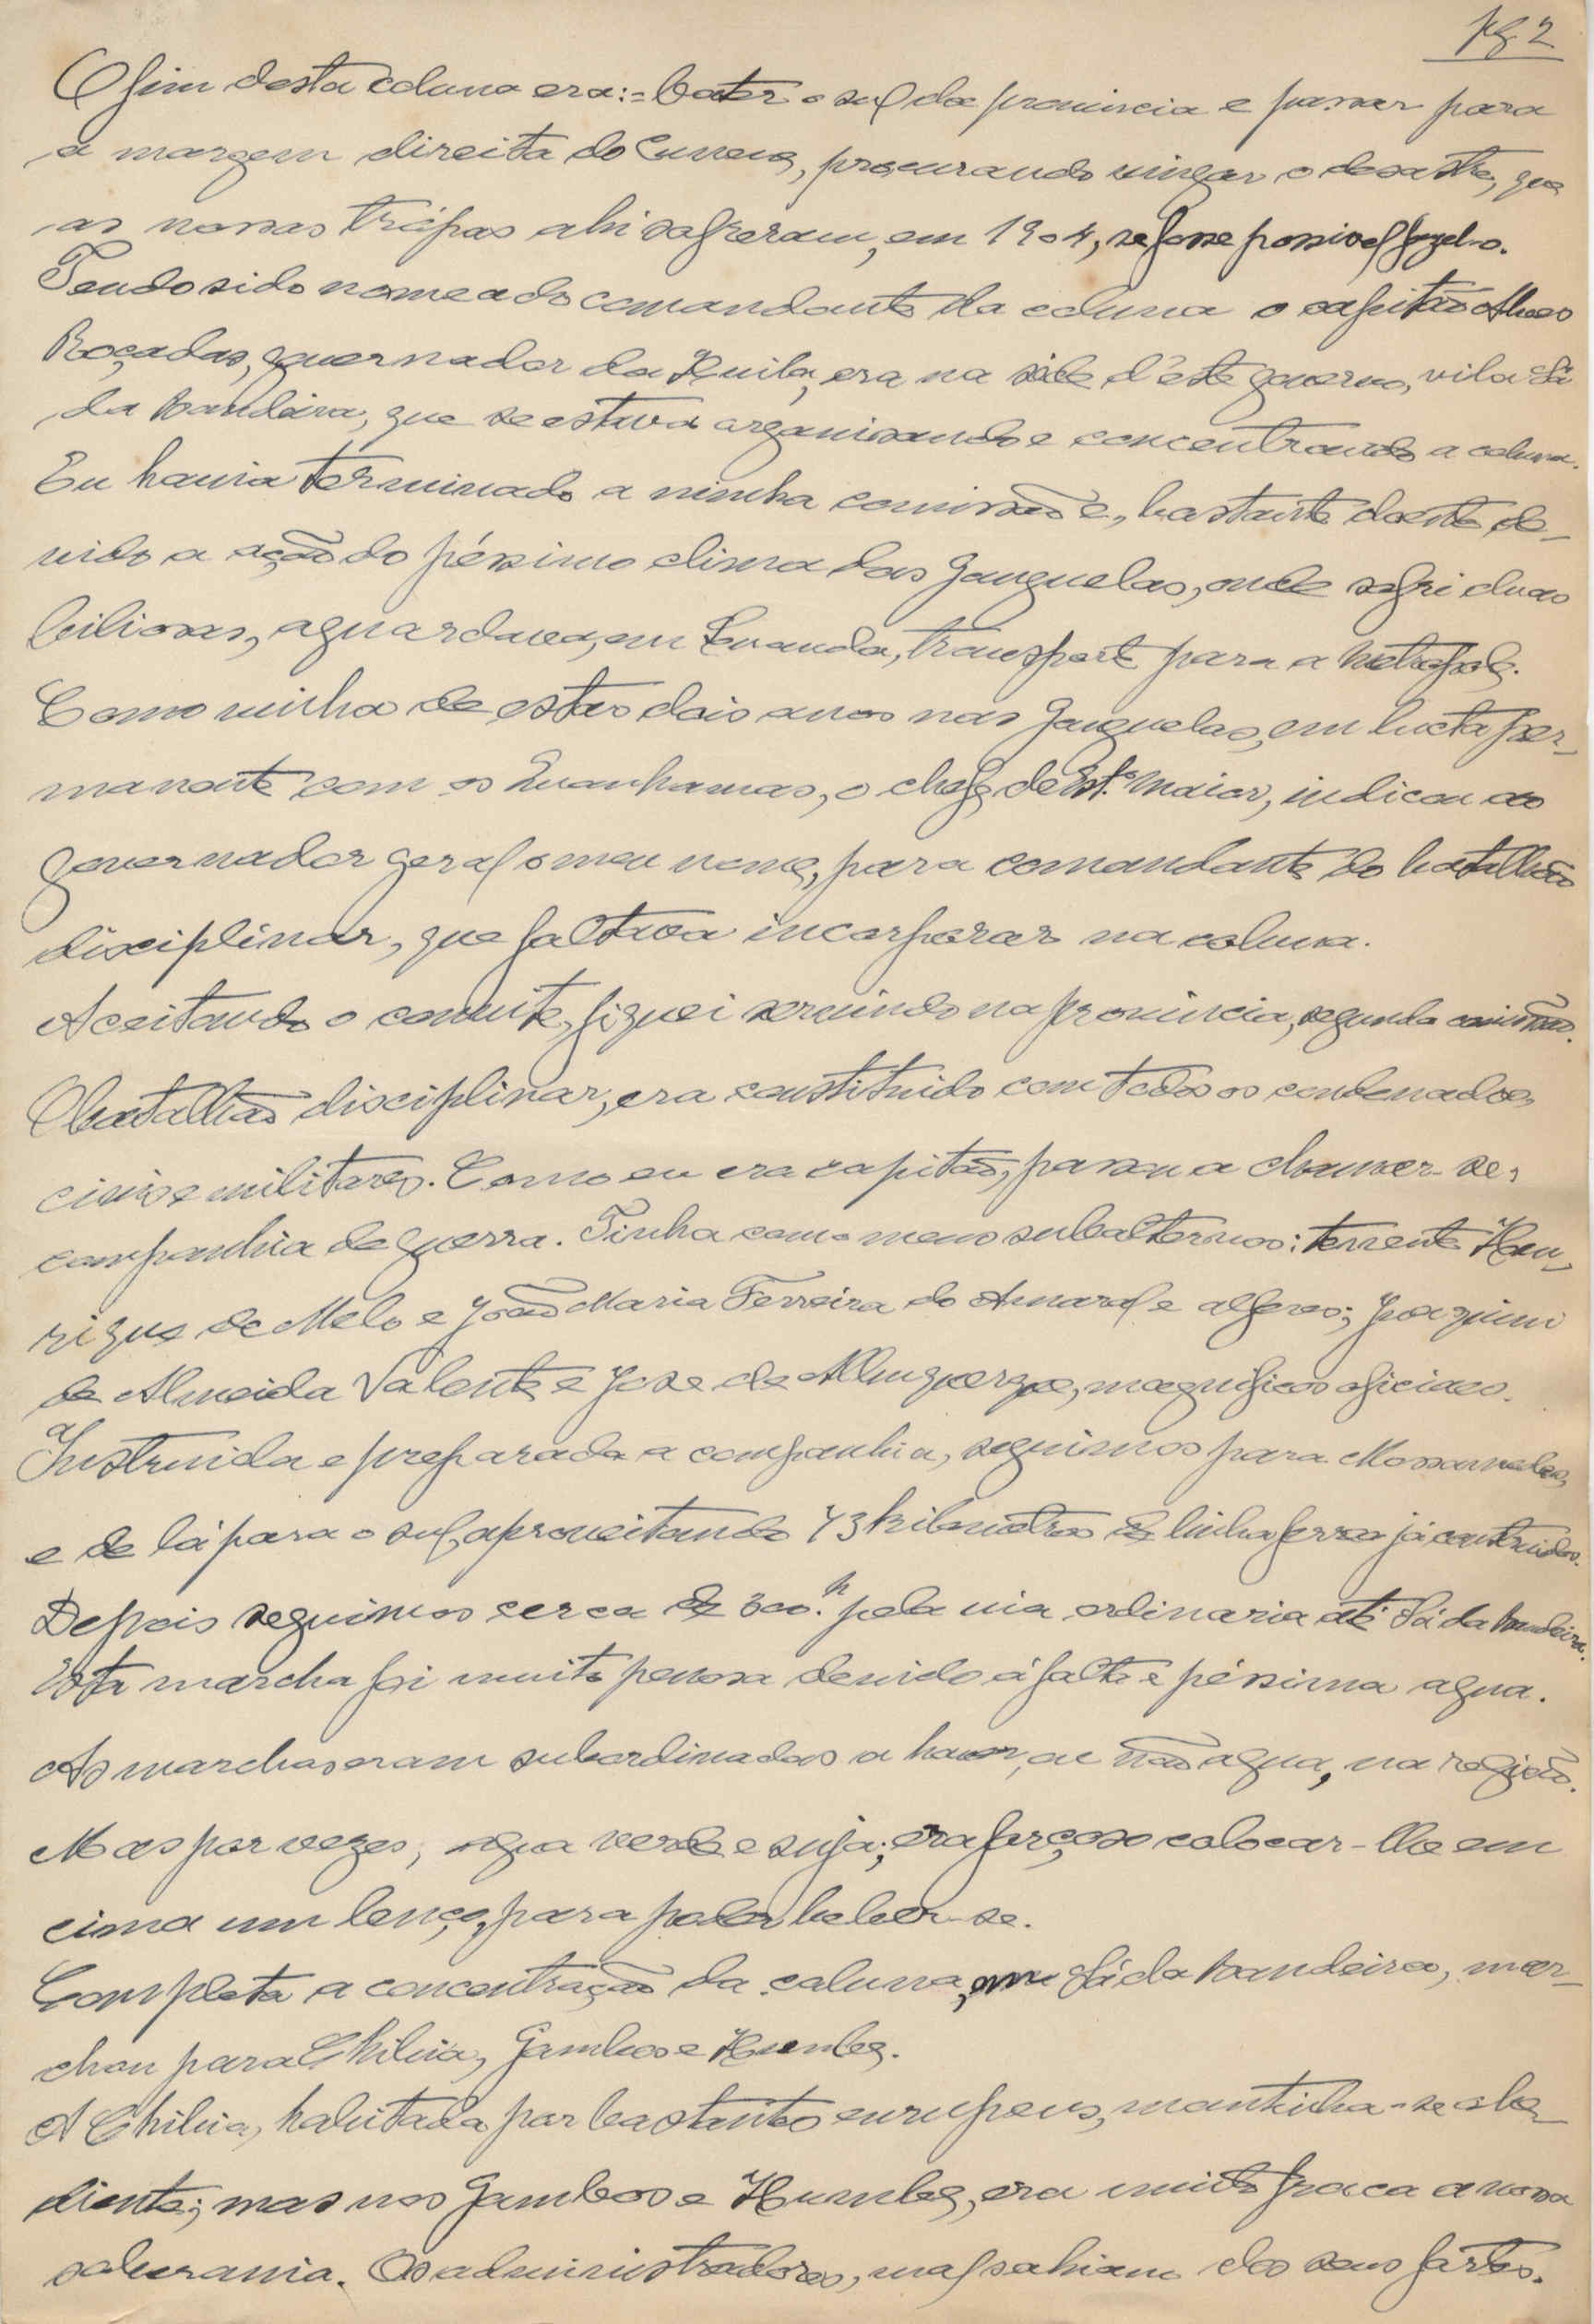 Pg. 2
O fim desta coluna era:= bater o sul da provincia e passar para
a margem direita do Cunene, procurando vingar o desastre, que
as nossas trópas ahi sofreram, em 1904, se fosse possivel fazel-o.
Tendo sido nomeado comandante da coluna o capitão Alves
Roçadas, governador da Huila, era na séde d'este governo, vila Sá
da Bandeira, que se estava organisando e concentrando a coluna.
Eu havia terminado a minha comissão e, bastante doente de-
vido a ação do péssimo clima das Ganguelas, onde sofri duas
biliosas, aguardava, em Luanda, transporte para a Metropole.
Como vinha de estar dois anos nas Ganguelas, em lucta per-
manente com os Cuanhamas, o chefe de Estº. Maior, indicou ao
governador geral o meu nome, para comandante do batalhão
disciplinar, que faltava incorporar na coluna.
Aceitando o convite, fiquei servindo na provincia, segunda comissão.
O batalhão disciplinar, era constituido com todos os condenados,
civis e militares. Como eu era capitão, passou a chamar-se,
companhia de guerra. Tinha como meus subalternos: tenente Hen-
rique de Melo e João Maria Ferreira do Amaral e alferes; Joaquim
de Almeida Valente e Jose de Albuquerque, magnificos oficiaes.
Instruida e preparada a companhia, seguimos para Mossamedes,
e de lá para o sul, aproveitando 73 kilometros de linha ferrea já construidos.
Depois seguimos cerca de 300.k pela via ordinaria até Sá da Bandeira.
Esta marcha foi muito penosa devido á falta e péssima agua.
As marchas eram subordinadas a haver, ou não agua, na região.
Mas por vezes, agua verde e suja; era forçoso colocar-lhe em
cima um lenço, para poder beber-se.
Completa a concentração da coluna, em Sá da Bandeira, mar-
chou para Chibia, Gambos e Humbe.
A Chibia, habitada por bastantes europeus, mantinha-se obe-
diente; mas nos Gambos e Humbe, era muito fraca a nossa
soberania. Os administradores, mal sahiam dos seus fortes.